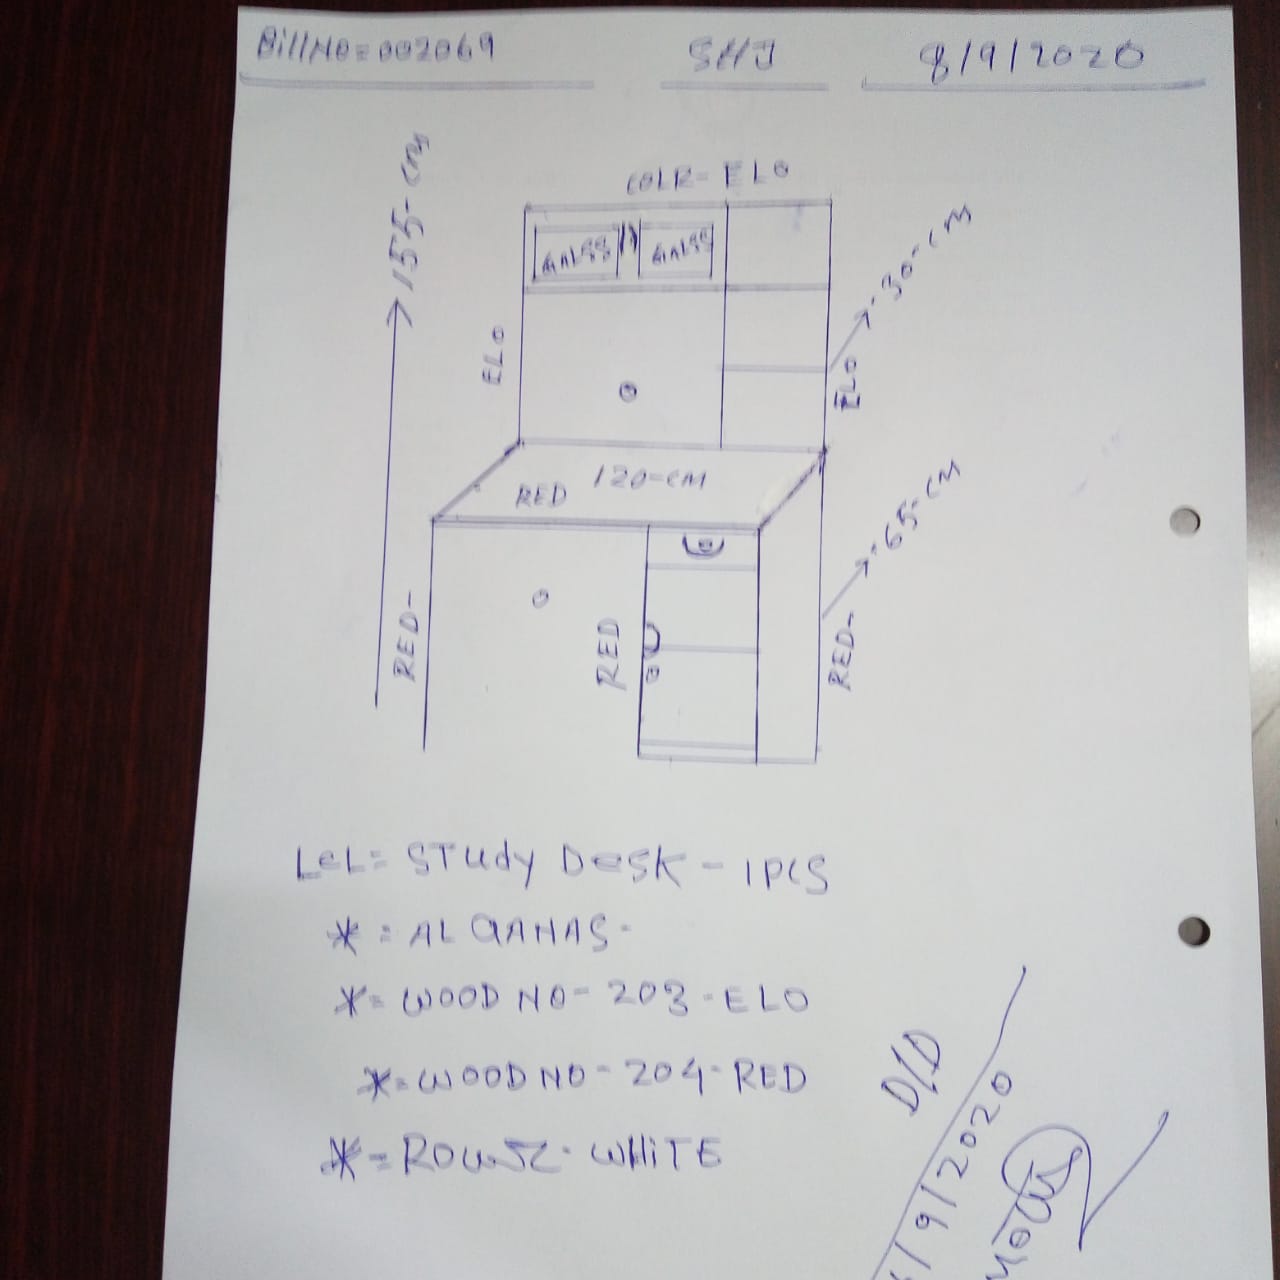 Bill NO = 002069 SHJ 8/9/2020
155-CM
COLR- ELO
GALSS GALSS
30-CM
ELO
ELO
120-CM
RED
65-CM
RED-
RED
RED-
LCL= STUDY DESK - 1PCS
* = AL QANAS-
*= WOOD NO - 203 - ELO
*= WOOD NO - 204 - RED
*= WHITE
D/D
/9/2020